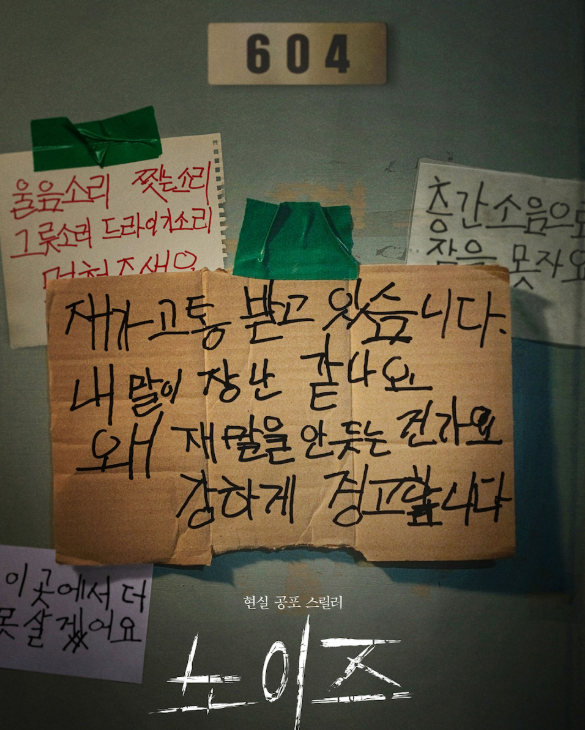 604
울음소리 찢는소리
그릇소리 드라이기소리
멈춰주세요
층간소음으로
잠을 못자요
재가 고통 받고 있습니다.
내 말이 장난 같나요
왜 재말을 안듣는 건가요
강하게 경고합니다
이곳에서 더
못살겠어요
현실 공포 스릴러
노이즈